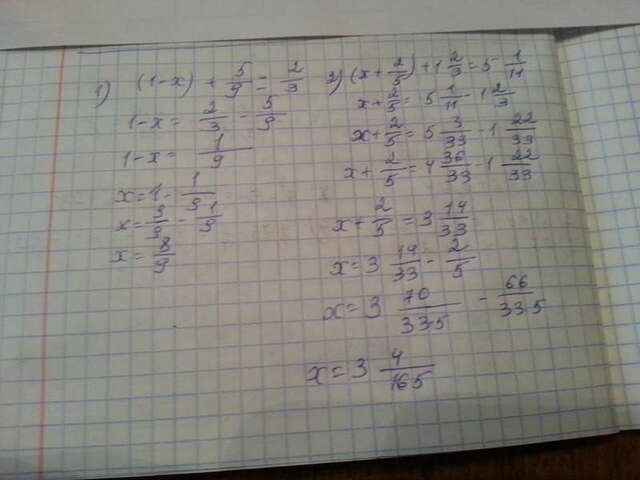 1) (1-x) + 5/9 = 2/3
1-x = 2/3 - 5/9
1-x = 1/9
x = 1 - 1/9
x = 9/9 - 1/9
x = 8/9
2) (x + 2/5) + 1 2/3 = 5 1/11
x + 2/5 = 5 1/11 - 1 2/3
x + 2/5 = 5 3/33 - 1 22/33
x + 2/5 = 4 36/33 - 1 22/33
x + 2/5 = 3 14/33
x = 3 14/33 - 2/5
x = 3 70/33·5 - 66/33·5
x = 3 4/165